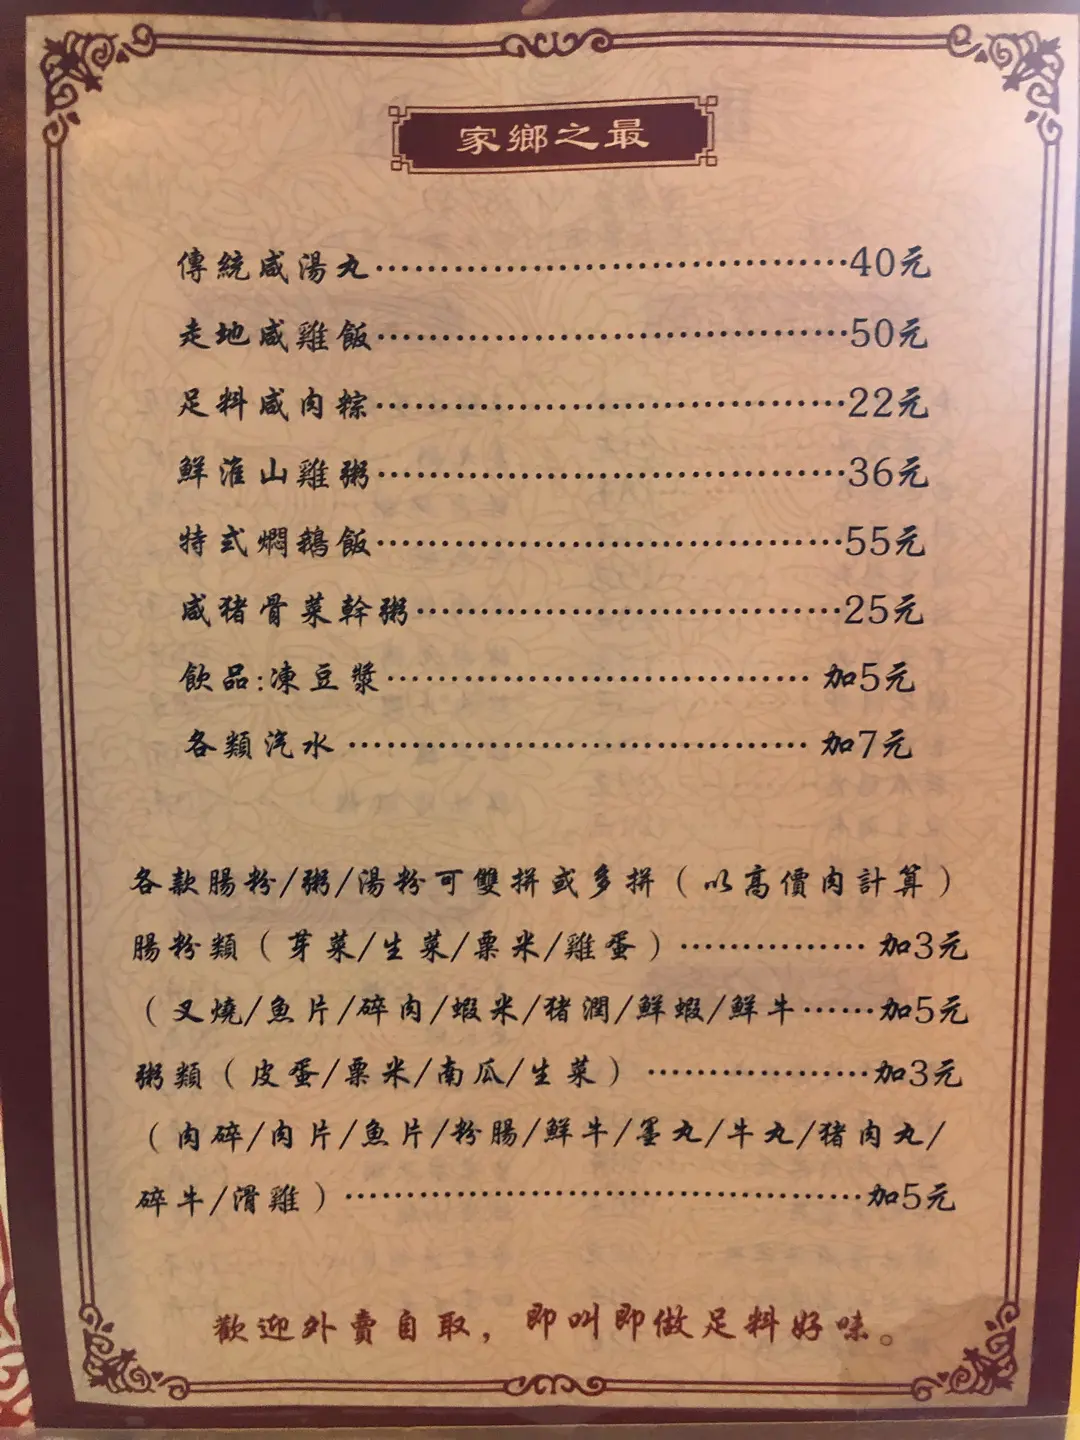 家鄉之最
傳統咸湯丸⋯⋯⋯⋯⋯⋯⋯⋯⋯⋯⋯⋯40元
走地咸雞飯⋯⋯⋯⋯⋯⋯⋯⋯⋯⋯⋯⋯50元
足料咸肉粽⋯⋯⋯⋯⋯⋯⋯⋯⋯⋯⋯⋯22元
鮮淮山雞粥⋯⋯⋯⋯⋯⋯⋯⋯⋯⋯⋯⋯36元
特式燜鵝飯⋯⋯⋯⋯⋯⋯⋯⋯⋯⋯⋯⋯55元
咸猪骨菜幹粥⋯⋯⋯⋯⋯⋯⋯⋯⋯⋯⋯25元
飲品:凍豆漿⋯⋯⋯⋯⋯⋯⋯⋯⋯⋯⋯ 加5元
各類汽水 ⋯⋯⋯⋯⋯⋯⋯⋯⋯⋯⋯⋯ 加7元
各款腸粉/粥/湯粉可雙拼或多拼（以高價肉計算）
腸粉類（芽菜/生菜/粟米/雞蛋）⋯⋯⋯⋯⋯ 加3元
（叉燒/魚片/碎肉/蝦米/猪潤/鮮蝦/鮮牛⋯⋯加5元
粥類（皮蛋/粟米/南瓜/生菜）⋯⋯⋯⋯⋯⋯加3元
（肉碎/肉片/魚片/粉腸/鮮牛/墨丸/牛丸/猪肉丸/
碎牛/滑雞）⋯⋯⋯⋯⋯⋯⋯⋯⋯⋯⋯⋯⋯加5元
歡迎外賣自取，即叫即做足料好味。